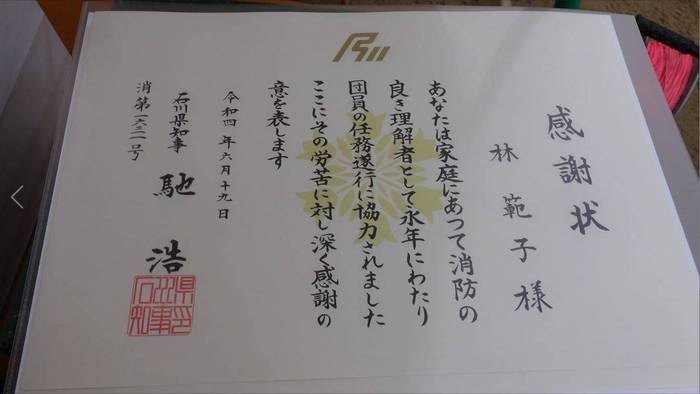 感謝状
林 範子 様
あなたは家庭にあつて消防の
良き理解者として永年にわたり
団員の任務遂行に協力されました
ここにその労苦に対し深く感謝の
意を表します
令和四年六月十九日
石川県知事 馳 浩
消第一六三一号
石川県知事印